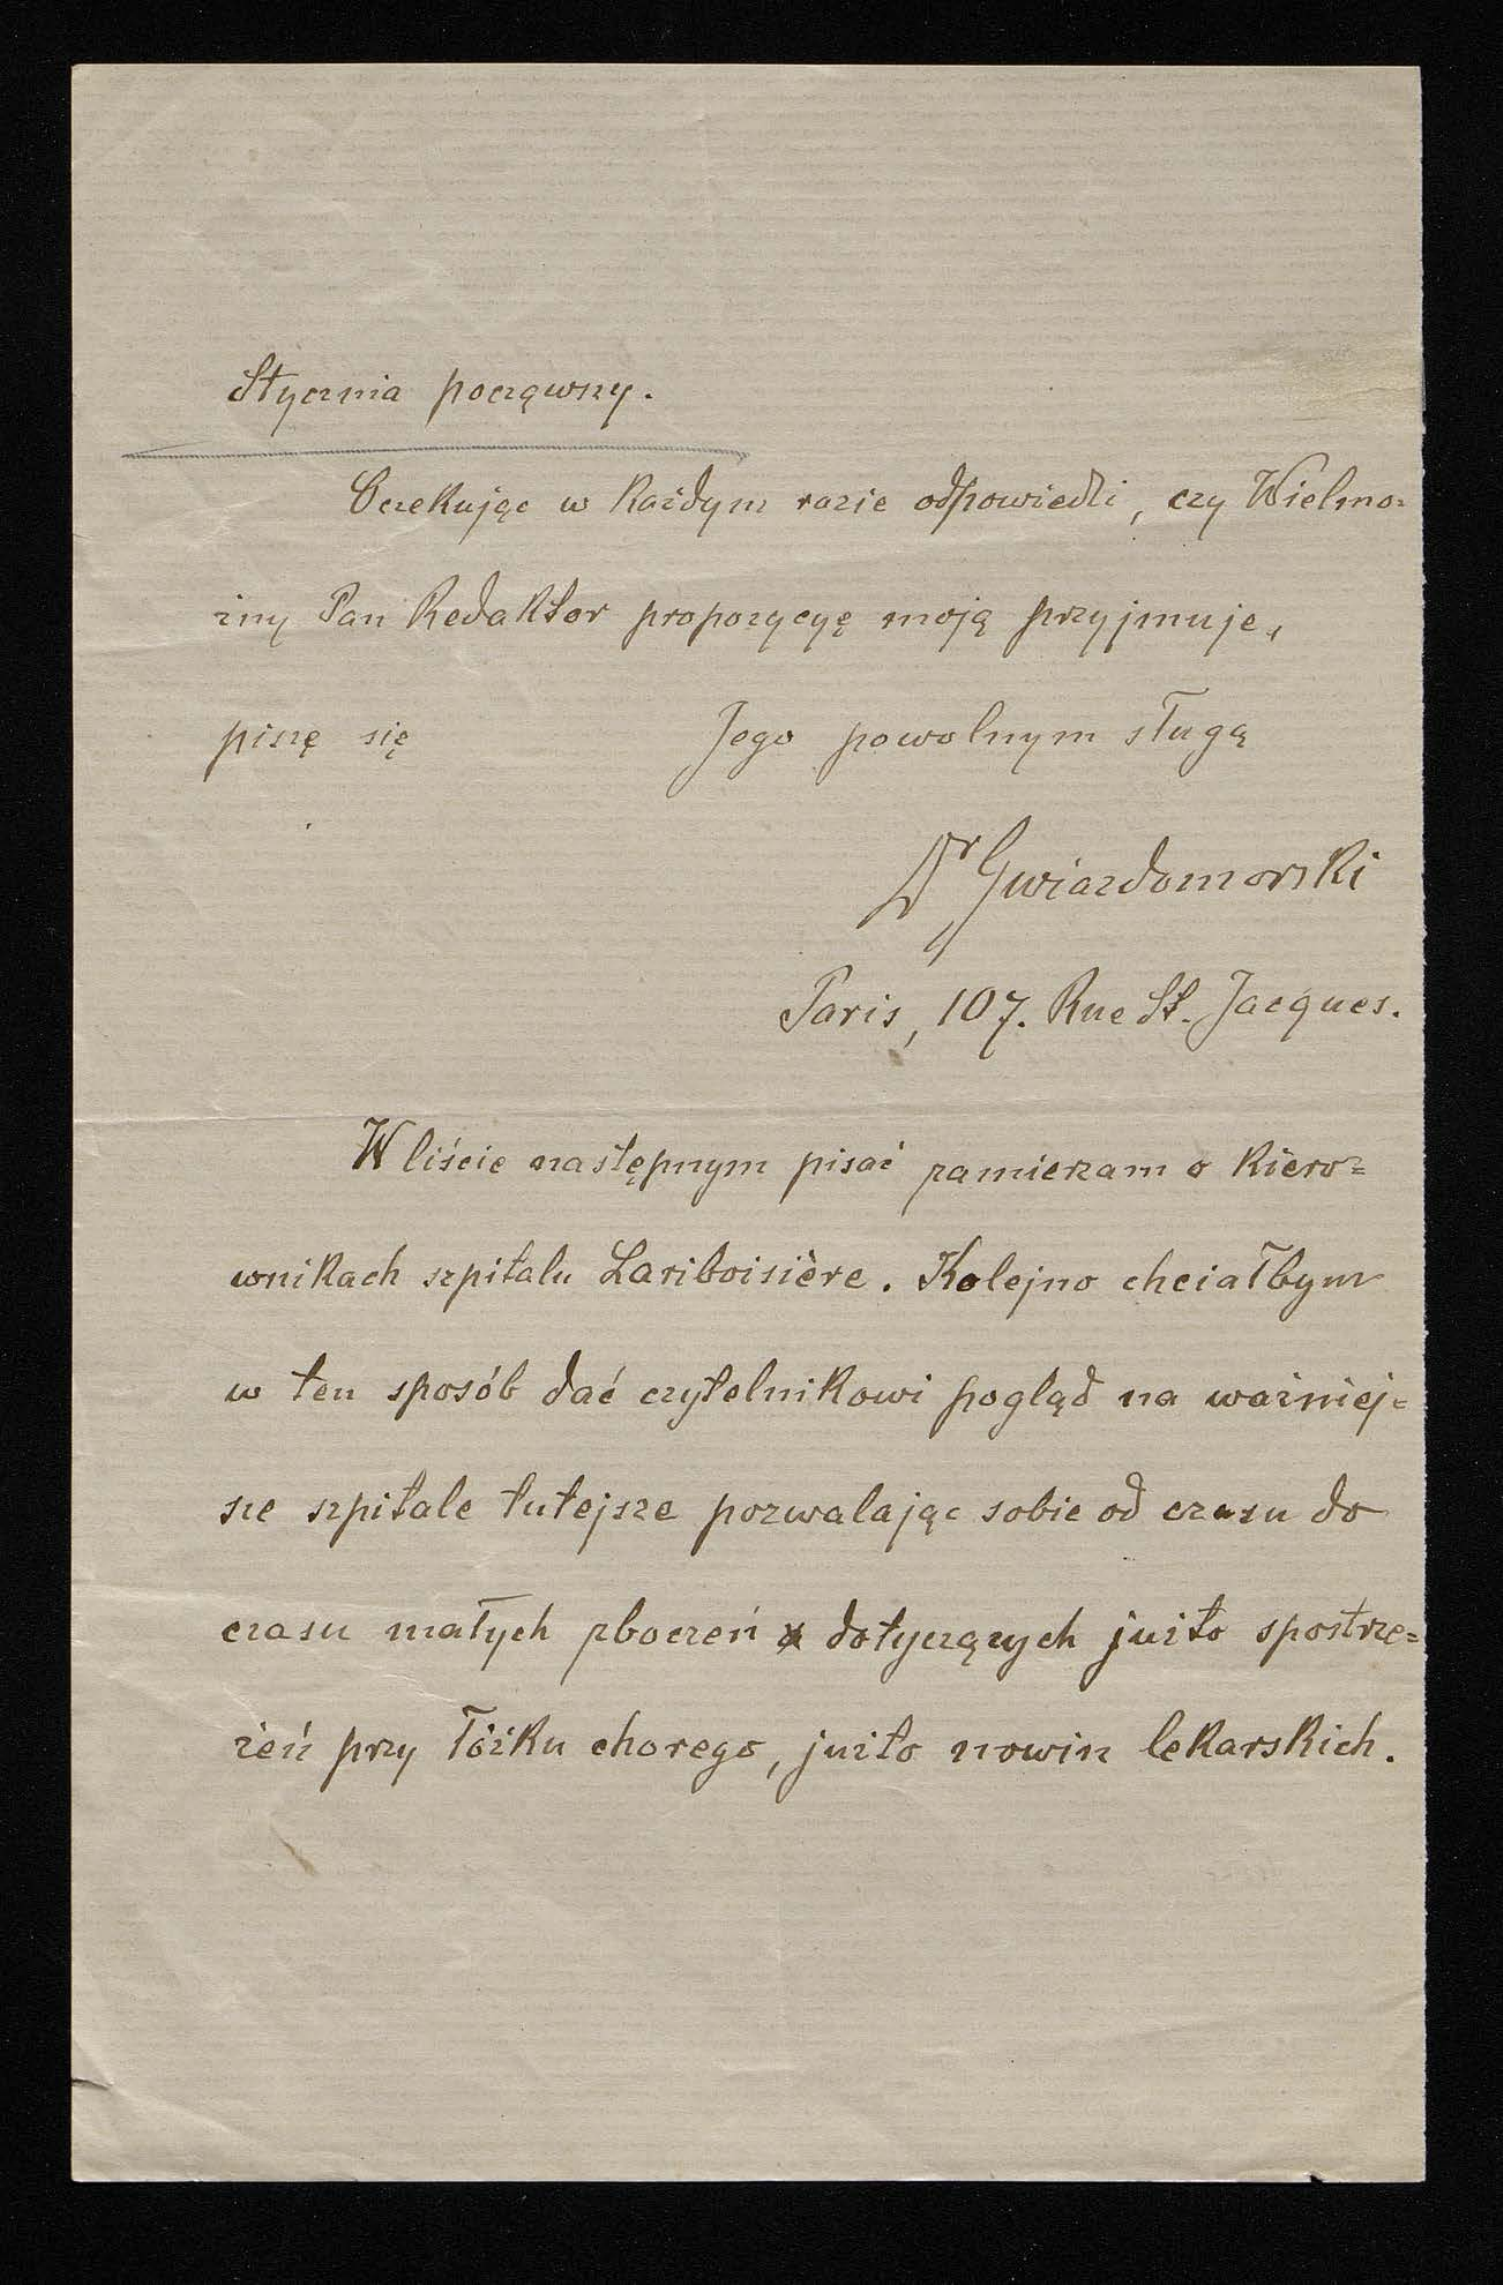 Stycznia począwszy.
Oczekując w każdym razie odpowiedzi, czy Wielmo=
żny Pan Redaktor propozycyę moją przyjmuje,
piszę się Jego powolnym sługą
Dr Gwiazdomorski
Paris, 107. Rue St. Jacques.
W liście następnym pisać zamierzam o kiero=
wnikach szpitalu Lariboisière. Kolejno chciałbym
w ten sposób dać czytelnikowi pogląd na ważniej=
sze szpitale tutejsze pozwalając sobie od czasu do
czasu małych zboczeń dotyczących jużto spostrze=
żeń przy łóżku chorego, jużto nowin lekarskich.